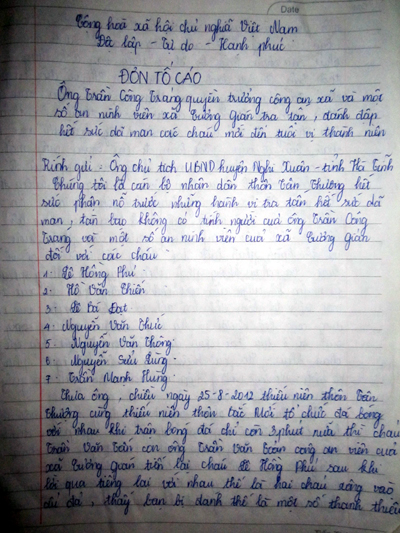 Date
Cộng hoà xã hội chủ nghĩa Việt Nam
Độc lập - Tự do - Hạnh phúc
ĐƠN TỐ CÁO
Ông Trần Công Trang quyền trưởng công an xã và một
số an ninh viên xã Cương Gián tra tấn, đánh đập
hết sức dã man các cháu mới đến tuổi vị thành niên
Kính gửi: Ông chủ tịch UBND huyện Nghi Xuân - tỉnh Hà Tĩnh
Chúng tôi là cán bộ nhân dân thôn Tân Thượng hết
sức phẫn nộ trước những hành vi tra tấn hết sức dã
man, tàn bạo không có tính người của ông Trần Công
Trang với một số an ninh viên của xã Cương Gián
đối với các cháu
1. Lê Hồng Phú
2. Hồ Văn Chiến
3. Lê Bá Đạt
4. Nguyễn Văn Thức
5. Nguyễn Văn Thông
6. Nguyễn Sửu
7. Trần Mạnh Hùng
Thưa ông, chiều ngày 25-8-2012 thiếu niên thôn Tân
Thượng cùng thiếu niên thôn Bắc Mới tổ chức đá bóng
với nhau khi trận bóng đá chỉ còn 3 phút nữa thì cháu
Trần Văn con ông Trần Văn công an viên của
xã Cương Gián tiến lại cháu Lê Hồng Phú sau khi
lời qua tiếng lại với nhau thế là hai cháu xông vào
thấy bạn bị đánh thế là một số thanh thiếu